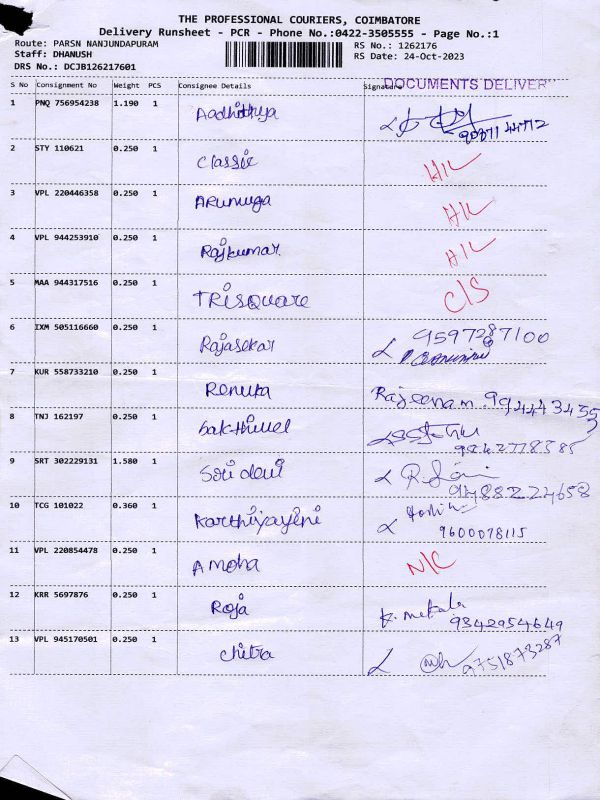 THE PROFESSIONAL COURIERS, COIMBATORE
Delivery Runsheet - PCR - Phone No.:0422-3505555 - Page No.:1
Route: PARSN NANJUNDAPURAM RS No.: 1262176
Staff: DHANUSH RS Date: 24-Oct-2023
DRS No.: DCJB126217601
DOCUMENTS DELIVER
S No Consignment No Weight PCS Consignee Details Signature
1 PNQ 756954238 1.190 1 Aadhithya
2 STY 110621 0.250 1 Classic H/L
3 VPL 220446358 0.250 1 Arumuga H/L
4 VPL 944253910 0.250 1 Rajkumar H/L
5 MAA 944317516 0.250 1 TRISQUARE C/S
6 IXM 505116660 0.250 1 Rajasekar 9597287100
7 KUR 558733210 0.250 1 Renuka
8 TNJ 162197 0.250 1 Sakthivel
9 SRT 302229131 1.580 1 Sri devi
9488224658
10 TCG 101022 0.360 1 Karthiyayini
9600078115
11 VPL 220854478 0.250 1 Amoha N/C
12 KRR 5697876 0.250 1 Roja K. mekala
9342954649
13 VPL 945170501 0.250 1 Chitra 9751873287